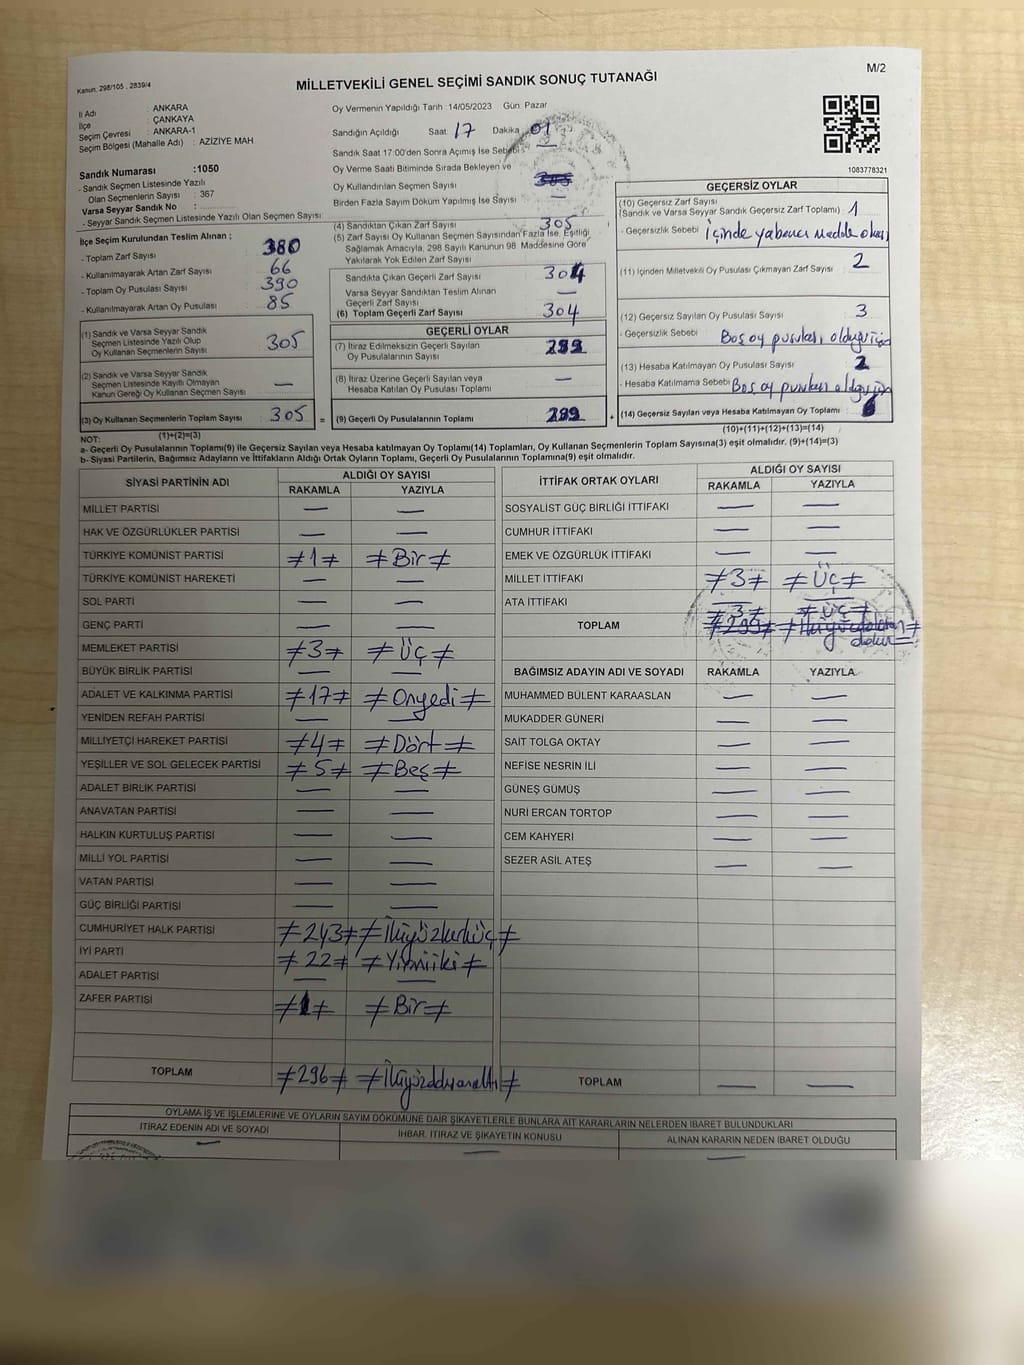 Kanun, 298/105 , 2839/4
MİLLETVEKİLİ GENEL SEÇİMİ SANDIK SONUÇ TUTANAĞI
M/2
İl Adı : ANKARA
İlçe : ÇANKAYA
Seçim Çevresi : ANKARA-1
Seçim Bölgesi (Mahalle Adı) : AZİZİYE MAH
Sandık Numarası :1050
- Sandık Seçmen Listesinde Yazılı
Olan Seçmenlerin Sayısı : 367
Varsa Seyyar Sandık No :
- Seyyar Sandık Seçmen Listesinde Yazılı Olan Seçmen Sayısı
İlçe Seçim Kurulundan Teslim Alınan ;
- Toplam Zarf Sayısı 380
- Kullanılmayarak Artan Zarf Sayısı 66
- Toplam Oy Pusulası Sayısı 390
- Kullanılmayarak Artan Oy Pusulası 85
(1) Sandık ve Varsa Seyyar Sandık
Seçmen Listesinde Yazılı Olup
Oy Kullanan Seçmenlerin Sayısı 305
(2) Sandık ve Varsa Seyyar Sandık
Seçmen Listesinde Kayıtlı Olmayan
Kanun Gereği Oy Kullanan Seçmen Sayısı —
(3) Oy Kullanan Seçmenlerin Toplam Sayısı 305 =
(1)+(2)=(3)
Oy Vermenin Yapıldığı Tarih :14/05/2023 Gün: Pazar
Sandığın Açıldığı Saat 17 Dakika 01
Sandık Saat 17:00'den Sonra Açımış İse Sebebi —
Oy Verme Saati Bitiminde Sırada Bekleyen ve
Oy Kullandırılan Seçmen Sayısı
Birden Fazla Sayım Döküm Yapılmış İse Sayısı —
(4) Sandıktan Çıkan Zarf Sayısı 305
(5) Zarf Sayısı Oy Kullanan Seçmen Sayısından Fazla İse, Eşitliği
Sağlamak Amacıyla, 298 Sayılı Kanunun 98. Maddesine Göre
Yakılarak Yok Edilen Zarf Sayısı
Sandıkta Çıkan Geçerli Zarf Sayısı 304
Varsa Seyyar Sandıktan Teslim Alınan
Geçerli Zarf Sayısı —
(6) Toplam Geçerli Zarf Sayısı 304
GEÇERLİ OYLAR
(7) İtiraz Edilmeksizin Geçerli Sayılan
Oy Pusulalarının Sayısı 299
(8) İtiraz Üzerine Geçerli Sayılan veya
Hesaba Katılan Oy Pusulası Toplamı —
(9) Geçerli Oy Pusulalarının Toplamı 299 +
1083778321
GEÇERSİZ OYLAR
(10) Geçersiz Zarf Sayısı
(Sandık ve Varsa Seyyar Sandık Geçersiz Zarf Toplamı) 1
- Geçersizlik Sebebi İçinde yabancı madde olması
(11) İçinden Milletvekili Oy Pusulası Çıkmayan Zarf Sayısı 2
(12) Geçersiz Sayılan Oy Pusulası Sayısı 3
- Geçersizlik Sebebi Boş oy pusulası olduğu için
(13) Hesaba Katılmayan Oy Pusulası Sayısı 2
- Hesaba Katılmama Sebebi Boş oy pusulası olduğu için
(14) Geçersiz Sayılan veya Hesaba Katılmayan Oy Toplamı 6
(10)+(11)+(12)+(13)=(14)
NOT:
a- Geçerli Oy Pusulalarının Toplamı(9) ile Geçersiz Sayılan veya Hesaba katılmayan Oy Toplamı(14) Toplamları, Oy Kullanan Seçmenlerin Toplam Sayısına(3) eşit olmalıdır. (9)+(14)=(3)
b- Siyasi Partilerin, Bağımsız Adayların ve İttifakların Aldığı Ortak Oyların Toplamı, Geçerli Oy Pusulalarının Toplamına(9) eşit olmalıdır.
SİYASİ PARTİNİN ADI ALDIĞI OY SAYISI
RAKAMLA YAZIYLA
MİLLET PARTİSİ — —
HAK VE ÖZGÜRLÜKLER PARTİSİ — —
TÜRKİYE KOMÜNİST PARTİSİ ≠1≠ ≠Bir≠
TÜRKİYE KOMÜNİST HAREKETİ — —
SOL PARTİ — —
GENÇ PARTİ — —
MEMLEKET PARTİSİ ≠3≠ ≠Üç≠
BÜYÜK BİRLİK PARTİSİ — —
ADALET VE KALKINMA PARTİSİ ≠17≠ ≠Onyedi≠
YENİDEN REFAH PARTİSİ — —
MİLLİYETÇİ HAREKET PARTİSİ ≠4≠ ≠Dört≠
YEŞİLLER VE SOL GELECEK PARTİSİ ≠5≠ ≠Beş≠
ADALET BİRLİK PARTİSİ — —
ANAVATAN PARTİSİ — —
HALKIN KURTULUŞ PARTİSİ — —
MİLLİ YOL PARTİSİ — —
VATAN PARTİSİ — —
GÜÇ BİRLİĞİ PARTİSİ — —
CUMHURİYET HALK PARTİSİ ≠243≠ ≠İkiyüzkırküç≠
İYİ PARTİ ≠22≠ ≠Yirmiiki≠
ADALET PARTİSİ — —
ZAFER PARTİSİ ≠1≠ ≠Bir≠
TOPLAM ≠296≠ ≠İkiyüzdoksanaltı≠
İTTİFAK ORTAK OYLARI ALDIĞI OY SAYISI
RAKAMLA YAZIYLA
SOSYALİST GÜÇ BİRLİĞİ İTTİFAKI — —
CUMHUR İTTİFAKI — —
EMEK VE ÖZGÜRLÜK İTTİFAKI — —
MİLLET İTTİFAKI ≠3≠ ≠Üç≠
ATA İTTİFAKI — —
TOPLAM ≠3≠ ≠Üç≠
≠299≠ ≠İkiyüzdoksan≠
dokuz
BAĞIMSIZ ADAYIN ADI VE SOYADI RAKAMLA YAZIYLA
MUHAMMED BÜLENT KARAASLAN — —
MUKADDER GÜNERİ — —
SAİT TOLGA OKTAY — —
NEFİSE NESRİN İLİ — —
GÜNEŞ GÜMÜŞ — —
NURİ ERCAN TORTOP — —
CEM KAHYERİ — —
SEZER ASİL ATEŞ — —
TOPLAM — —
OYLAMA İŞ VE İŞLEMLERİNE VE OYLARIN SAYIM DÖKÜMÜNE DAİR ŞİKAYETLERLE BUNLARA AİT KARARLARIN NELERDEN İBARET BULUNDUKLARI
İTİRAZ EDENİN ADI VE SOYADI İHBAR, İTİRAZ VE ŞİKAYETİN KONUSU ALINAN KARARIN NEDEN İBARET OLDUĞU
— — —